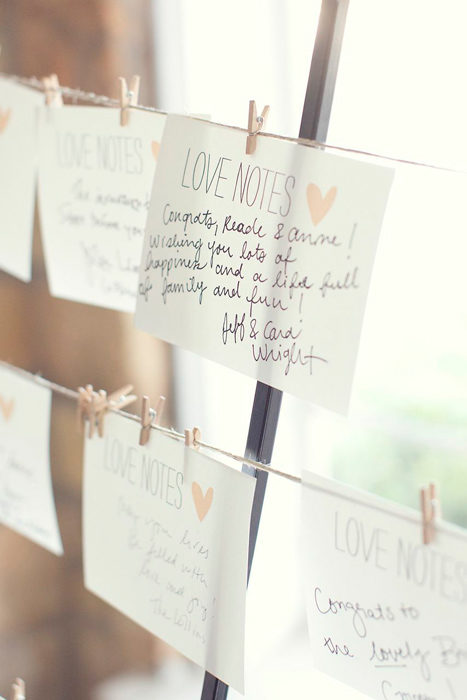 LOVE NOTES
LOVE NOTES
Congrats, Reade & Anne!
Wishing you lots of
happiness and a life full
of family and fun!
Jeff & Cardi
Wright
LOVE NOTES
May your lives
be filled with
love and joy!
the
LOVE NOTES
Congrats to
the lovely